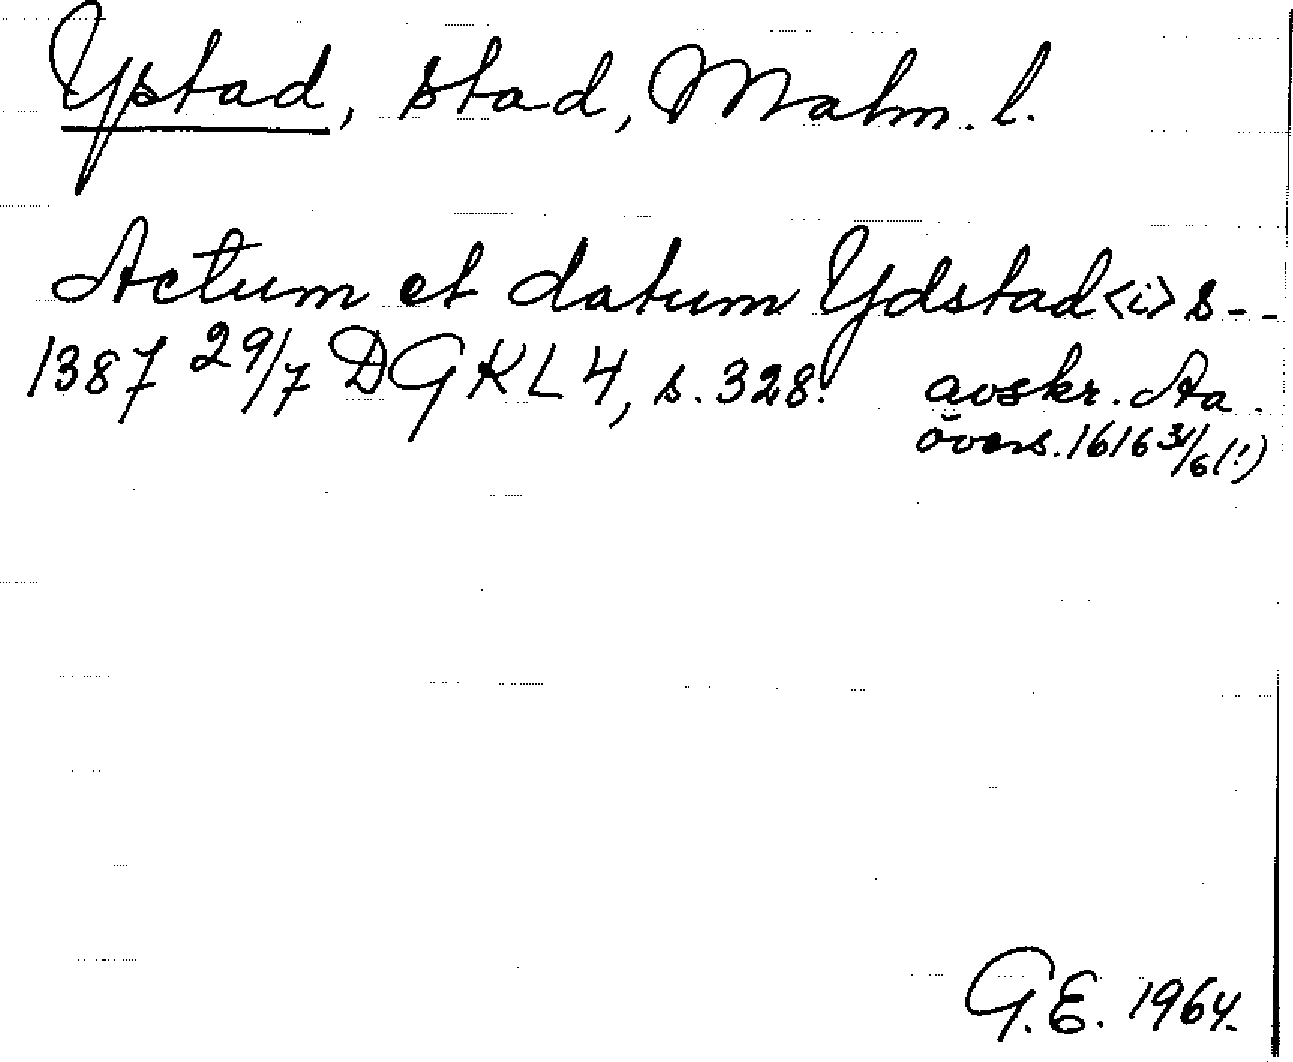 Ystad, stad, Malm. l.
Actum et datum Ydstad<i>s--
1387 29/7 DGKL 4, s. 328. avskr. Aa.
övers. 1616 31/6 (!)
G.E. 1964.